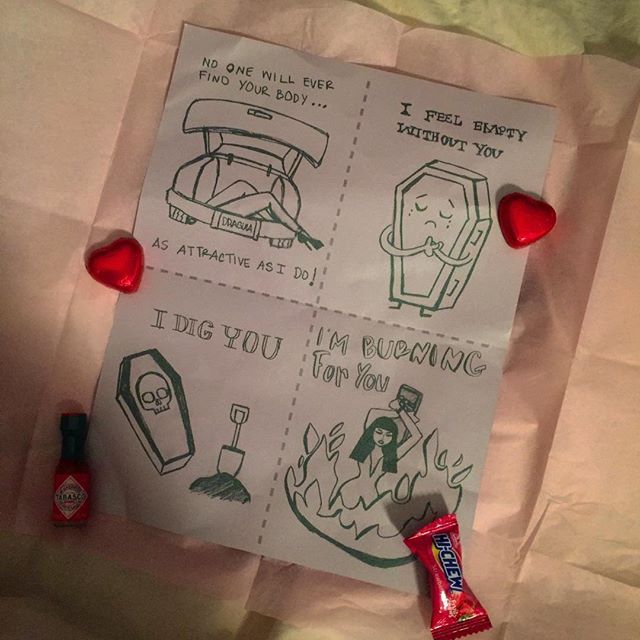 NO ONE WILL EVER
FIND YOUR BODY...
DRAGULA
AS ATTRACTIVE AS I DO!
I FEEL EMPTY
WITHOUT YOU
I DIG YOU
I'M BURNING
FOR YOU
TABASCO
HI-CHEW